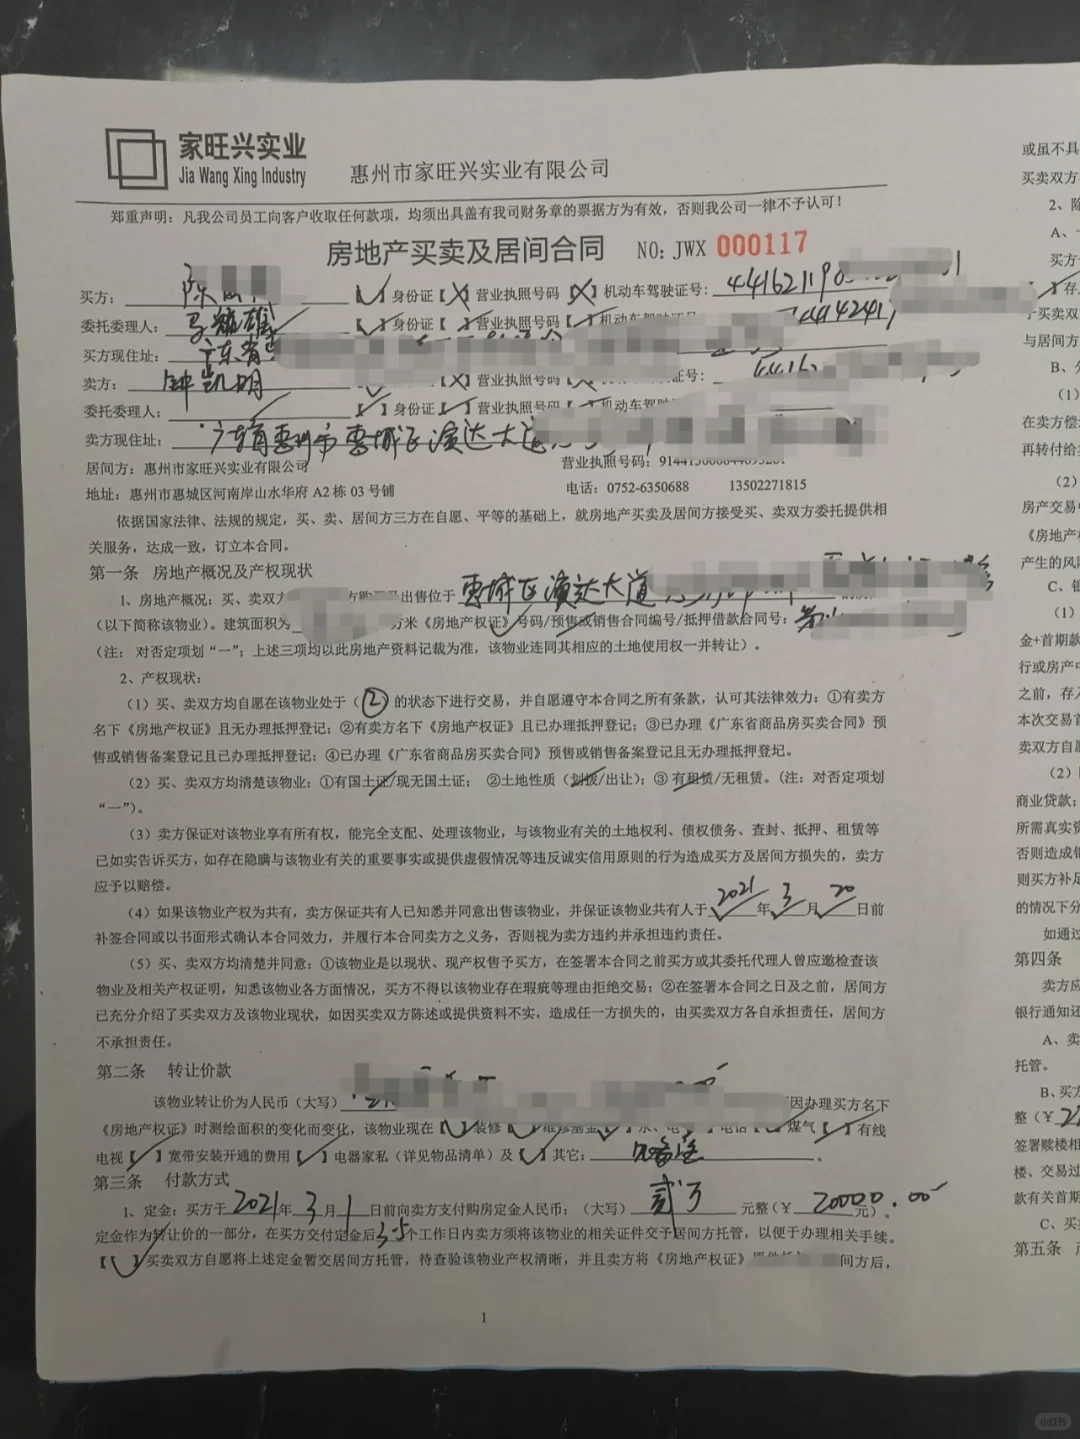 家旺兴实业
Jia Wang Xing Industry
惠州市家旺兴实业有限公司
郑重声明：凡我公司员工向客户收取任何款项，均须出具盖有我司财务章的票据方为有效，否则我公司一律不予认可！
房地产买卖及居间合同 NO: JWX 000117
买方： 陈 【✓】身份证【╳】营业执照号码【╳】机动车驾驶证号：
委托委理人： 【✓】身份证【 】营业执照号码【 】机动车驾驶证号
买方现住址： 广东省
卖方： 钟凯明 营业执照号码 驾驶证号：
委托委理人： 【 】身份证【 】营业执照号码【 】机动车驾驶
卖方现住址： 广东省惠州市惠城区演达大道
居间方：惠州市家旺兴实业有限公司 营业执照号码：
地址：惠州市惠城区河南岸山水华府 A2 栋 03 号铺 电话：0752-6350688 13502271815
依据国家法律、法规的规定，买、卖、居间方三方在自愿、平等的基础上，就房地产买卖及居间方接受买、卖双方委托提供相
关服务，达成一致，订立本合同。
第一条 房地产概况及产权现状
1、房地产概况：买、卖双方 出售位于 惠城区演达大道
（以下简称该物业）。建筑面积为 方米《房地产权证》号码/预售或销售合同编号/抵押借款合同号：
（注： 对否定项划“一”；上述三项均以此房地产资料记载为准，该物业连同其相应的土地使用权一并转让）。
2、产权现状：
（1）买、卖双方均自愿在该物业处于（ ② ）的状态下进行交易，并自愿遵守本合同之所有条款，认可其法律效力：①有卖方
名下《房地产权证》且无办理抵押登记；②有卖方名下《房地产权证》且已办理抵押登记；③已办理《广东省商品房买卖合同》预
售或销售备案登记且已办理抵押登记；④已办理《广东省商品房买卖合同》预售或销售备案登记且无办理抵押登记。
（2）买、卖双方均清楚该物业：①有国土证/现无国土证； ②土地性质（划拨/出让）；③ 有租赁/无租赁。（注：对否定项划
“一”）。
（3）卖方保证对该物业享有所有权，能完全支配、处理该物业，与该物业有关的土地权利、债权债务、查封、抵押、租赁等
已如实告诉买方，如存在隐瞒与该物业有关的重要事实或提供虚假情况等违反诚实信用原则的行为造成买方及居间方损失的，卖方
应予以赔偿。
（4）如果该物业产权为共有，卖方保证共有人已知悉并同意出售该物业，并保证该物业共有人于 2021 年 3 月 20 日前
补签合同或以书面形式确认本合同效力，并履行本合同卖方之义务，否则视为卖方违约并承担违约责任。
（5）买、卖双方均清楚并同意：①该物业是以现状、现产权售予买方，在签署本合同之前买方或其委托代理人曾应邀检查该
物业及相关产权证明，知悉该物业各方面情况，买方不得以该物业存在瑕疵等理由拒绝交易；②在签署本合同之日及之前，居间方
已充分介绍了买卖双方及该物业现状，如因买卖双方陈述或提供资料不实，造成任一方损失的，由买卖双方各自承担责任，居间方
不承担责任。
第二条 转让价款
该物业转让价为人民币（大写） 因办理买方名下
《房地产权证》时测绘面积的变化而变化，该物业现在【✓】装修【✓】维修基金【✓】水、电 电话【 】煤气【 】有线
电视【 】宽带安装开通的费用【 】电器家私（详见物品清单）及【 】其它： 。
第三条 付款方式
1、定金：买方于 2021 年 3 月 1 日前向卖方支付购房定金人民币：（大写） 贰万 元整（￥ 20000.00 元）。
定金作为转让价的一部分，在买方交付定金后 3-5 个工作日内卖方须将该物业的相关证件交予居间方托管，以便于办理相关手续。
【✓】买卖双方自愿将上述定金暂交居间方托管，待查验该物业产权清晰，并且卖方将《房地产权证》 间方后，
1
或虽不具
买卖双方
2、
A、
买方
与居间方
B、
（1）
在卖方偿
再转付给
（2）
房产交易
《房地产
产生的风
C、
（1）
金+首期款
行或房产
之前，存入
本次交易
卖双方自愿
（2）
商业贷款；
所需真实资
否则造成
则买方补足
的情况下
如通过
第四条
卖方应
银行通知还
A、卖
托管。
B、买方
整（￥
签署赎楼相
楼、交易过
款有关首期
C、买
第五条
小红书